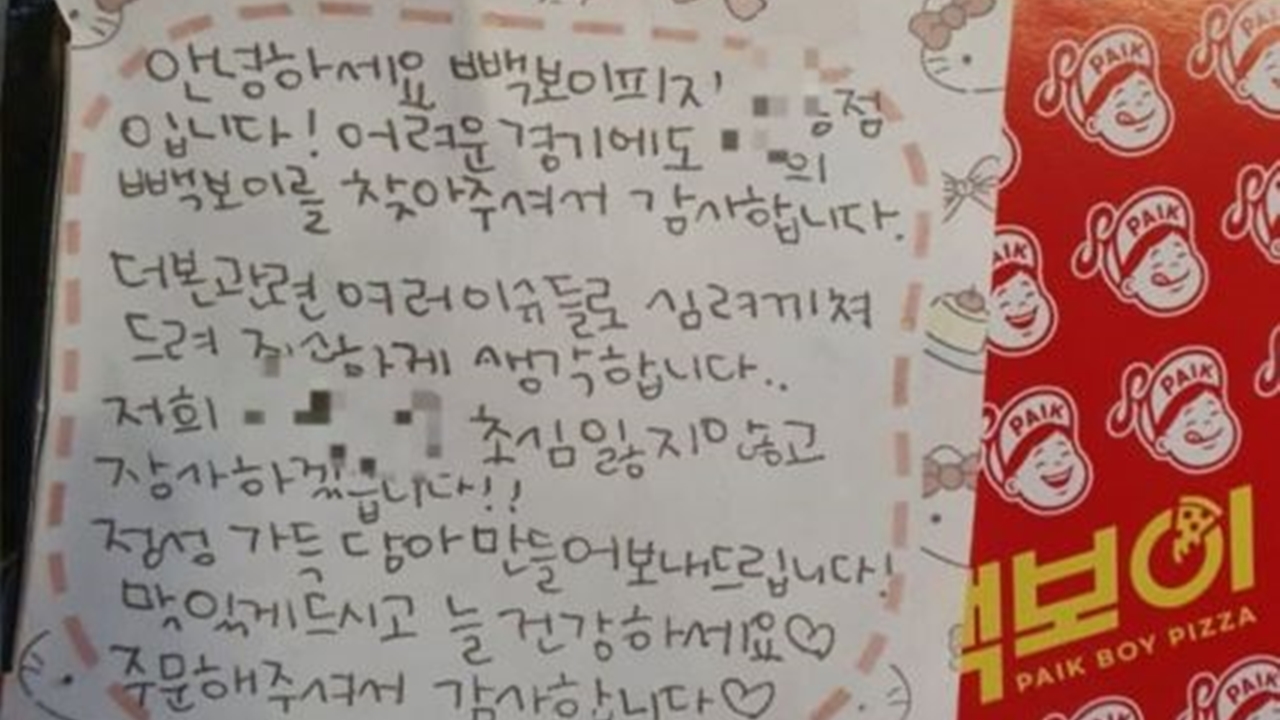 안녕하세요 빽보이피자 점
입니다! 어려운 경기에도 의
빽보이를 찾아주셔서 감사합니다.
더본관련 여러이슈들로 심려끼쳐
드려 죄송하게 생각합니다..
저희 초심잃지않고
장사하겠습니다!!
정성 가득 담아 만들어보내드립니다!
맛있게드시고 늘 건강하세요♡
주문해주셔서 감사합니다♡
PAIK
PAIK
PAIK
PAIK
PAIK
보이
PAIK BOY PIZZA
PAIK